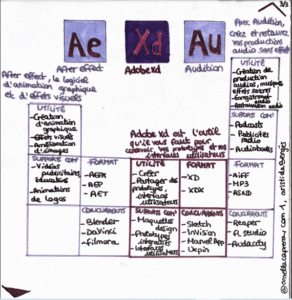 3/3
Ae
Xd
Au
After effect
Adobe xd
Audition
After effect, le logiciel
d'animation graphique
et d'effets visuels
Adobe xd est l'outil
qu'il vous faut pour
vos prototypes et
interfaces utilisateurs
Avec Audition,
Créez et restaurez
vos productions
audio sans effort
UTILITÉ
- Création
d'animation
graphique
- Effets visuels
- Amélioration
d'images
SUPPORTS COM°
- Vidéos
publicitaires
- Animations
de logos
FORMAT
- AEP
- AET
CONCURRENTS
- Blender
- DaVinci
- filmora
UTILITÉ
- Créer
- Partager des
prototypes,
interfaces
utilisateurs
FORMAT
- XD
- XDX
SUPPORTS COM°
- Maquettes
design
- Prototypes
interactifs
- Interfaces
utilisateurs
CONCURRENTS
- Sketch
- Invision
- Marvel App
- Uxpin
UTILITÉ
- Création de
production
audios, musique
effets sonores
- Enregistrement
- Restauration audio
SUPPORTS COM°
- Podcasts
- Publicités
radio
- Audiobooks
FORMAT
- AIFF
- MP3
CONCURRENTS
- Reaper
- FL studio
- Audacity